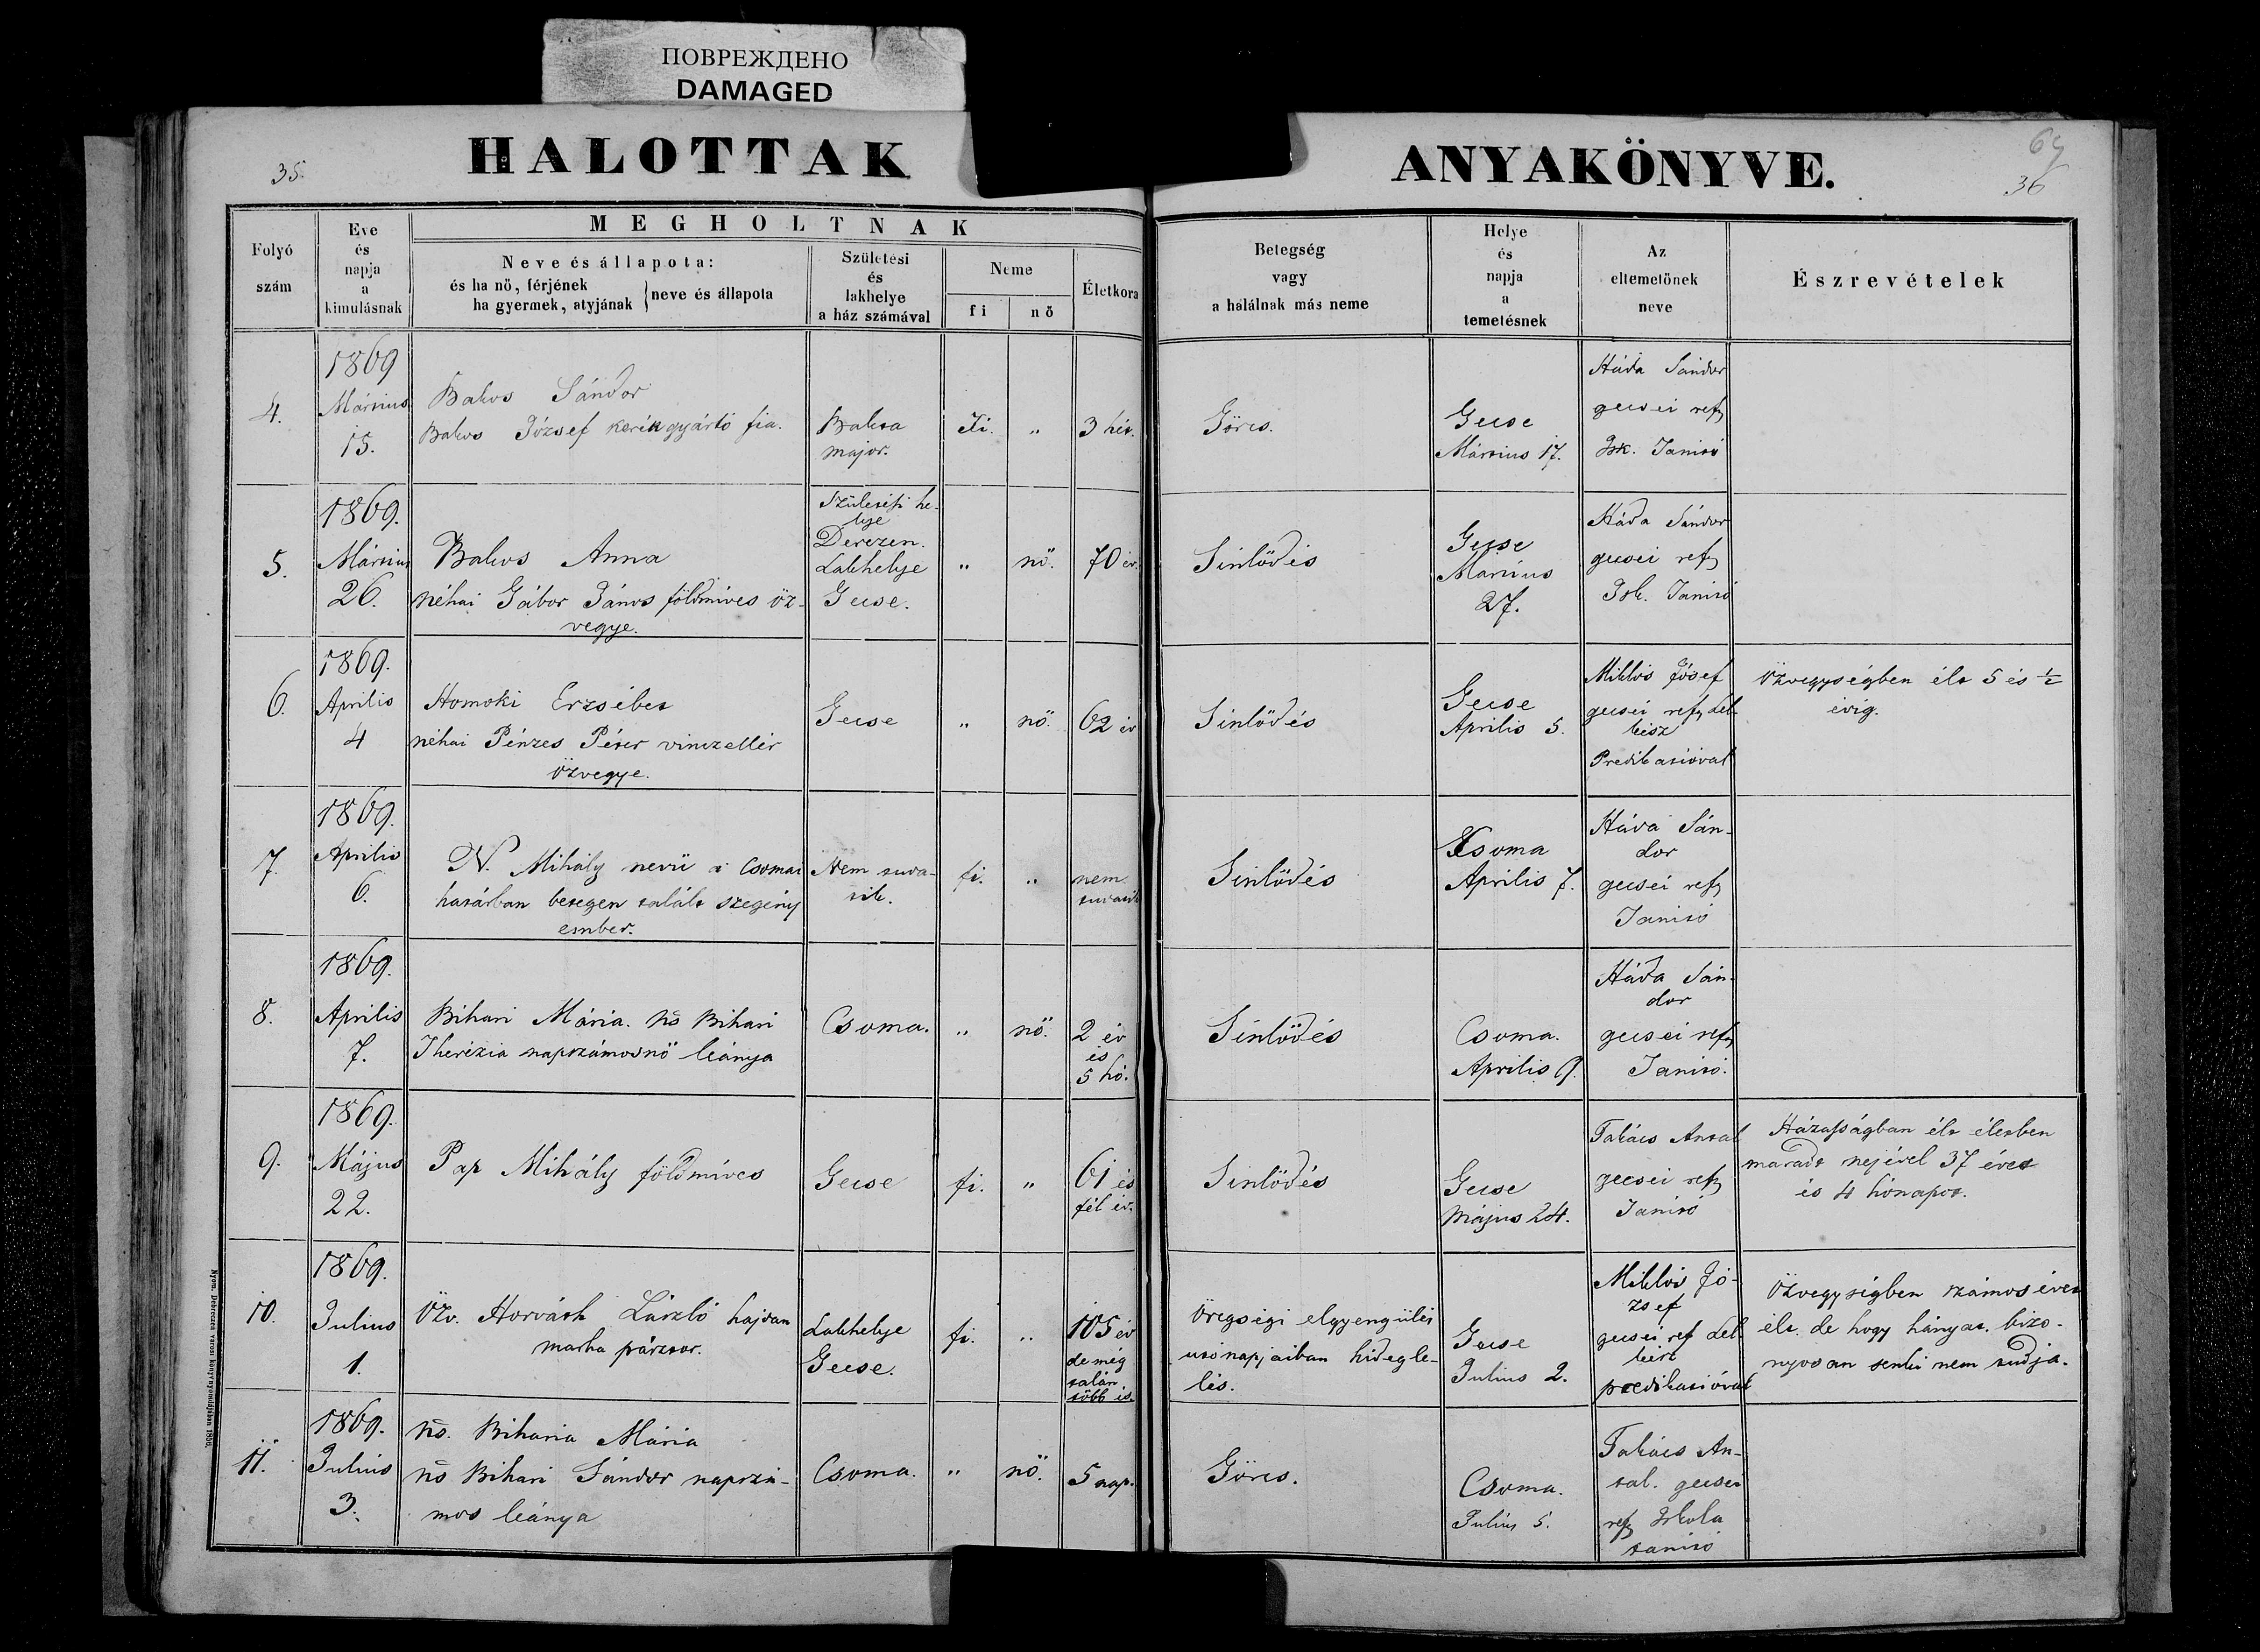 ПОВРЕЖДЕНО
DAMAGED
35.
HALOTTAK
ANYAKÖNYVE.
69
36
Folyó
szám
Eve
és
napja
a
kimulásnak
MEGHOLTNAK
Neve és állapota:
és ha nö, férjének
ha gyermek, atyjának
neve és állapota
Születési
és
lakhelye
a ház számával
Neme
fi
nö
Életkora
Betegség
vagy
a halálnak más neme
Helye
és
napja
a
temetésnek
Az
eltemetönek
neve
Észrevételek
4.
1869
Március
15.
Bakos Sándor
Bakos József kerékgyártó fia.
Bakta
major.
Fi.
"
3 hét.
Görcs.
Gecse
Március 17.
Háda Sándor
gecsei ref
Isk. Tanitó
5.
1869.
Március
26.
Bakos Anna
néhai Gábor János földmíves öz-
vegye.
Születési he-
lye
Derczen.
Lakhelye
Gecse.
"
nö.
70 év.
Sinlődés
Gecse
Március
27.
Háda Sándor
gecsei ref
Isk. Tanitó
6.
1869.
Aprilis
4
Homoki Erzsébet
néhai Pénzes Péter vinczellér
özvegye.
Gecse
"
nö.
62 év
Sinlődés
Gecse
Aprilis 5.
Miklós Jósef
gecsei ref Lel-
kész
Predikatióval
Özvegységben élt 5 és ½
évig.
7.
1869.
Aprilis
6.
N. Mihály nevü a Csomai
határban betegen talált szegény
ember.
Nem tuda-
tik.
fi.
"
nem
tudatik
Sinlődés
Csoma
Aprilis 7.
Háda Sán-
dor
gecsei ref
Tanitó
8.
1869.
Aprilis
7.
Bihari Mária. Nő Bihari
Therézia napszámosnö leánya
Csoma.
"
nö.
2 év
és
5 hó.
Sinlődés
Csoma.
Aprilis 9.
Háda Sán-
dor
gecsei ref
Tanitó.
9.
1869.
Május
22.
Pap Mihály földmíves
Gecse
fi.
"
61 és
fél év.
Sinlődés
Gecse
Május 24.
Takács Antal
gecsei ref
Tanitó
Házasságban élt életben
maradt nejével 37 évet
és 4 hónapot.
10.
1869.
Julius
1.
Özv. Horváth László hajdan
marha pásztor.
Lakhelye
Gecse.
fi.
"
105 év
de még
talán
több is.
Öregségi elgyengülés
utónapjaiban hidegle-
lés.
Gecse
Julius 2.
Miklós Jó-
zsef
gecsei ref Lel-
kész
predikatióval
Özvegységben számos évet
élt. de hogy hányat. bizo-
nyosan senki nem tudja.
11.
1869.
Julius
3.
Nő. Biharia Mária
Nő Bihari Sándor napszá-
mos leánya
Csoma.
"
nö.
5 nap.
Görcs.
Csoma.
Julius 5.
Takács An-
tal. gecsei
ref Iskola
tanitó
Nyom. Debreczen városi könyvnyomdájában 1850.